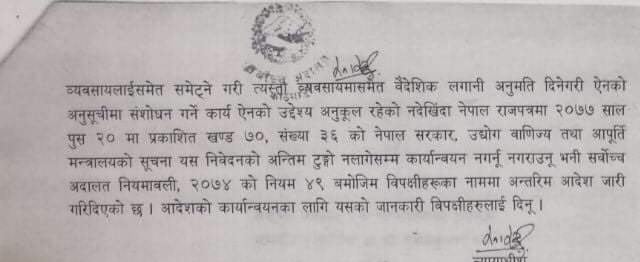 सर्वोच्च अदालत
व्यवसायलाईसमेत समेट्ने गरी त्यस्तो व्यवसायमासमेत वैदेशिक लगानी अनुमति दिनेगरी ऐनको
अनुसूचीमा संशोधन गर्ने कार्य ऐनको उद्देश्य अनुकूल रहेको नदेखिंदा नेपाल राजपत्रमा २०७७ साल
पुस २० मा प्रकाशित खण्ड ७०, संख्या ३६ को नेपाल सरकार, उद्योग वाणिज्य तथा आपूर्ति
मन्त्रालयको सूचना यस निवेदनको अन्तिम टुङ्गो नलागेसम्म कार्यान्वयन नगर्नू नगराउनू भनी सर्वोच्च
अदालत नियमावली, २०७४ को नियम ४९ बमोजिम विपक्षीहरूका नाममा अन्तरिम आदेश जारी
गरिदिएको छ । आदेशको कार्यान्वयनका लागि यसको जानकारी विपक्षीहरुलाई दिनू ।
न्यायाधीश